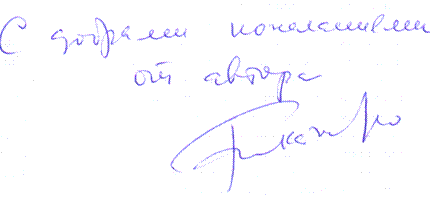 С добрыми пожеланиями
от автора